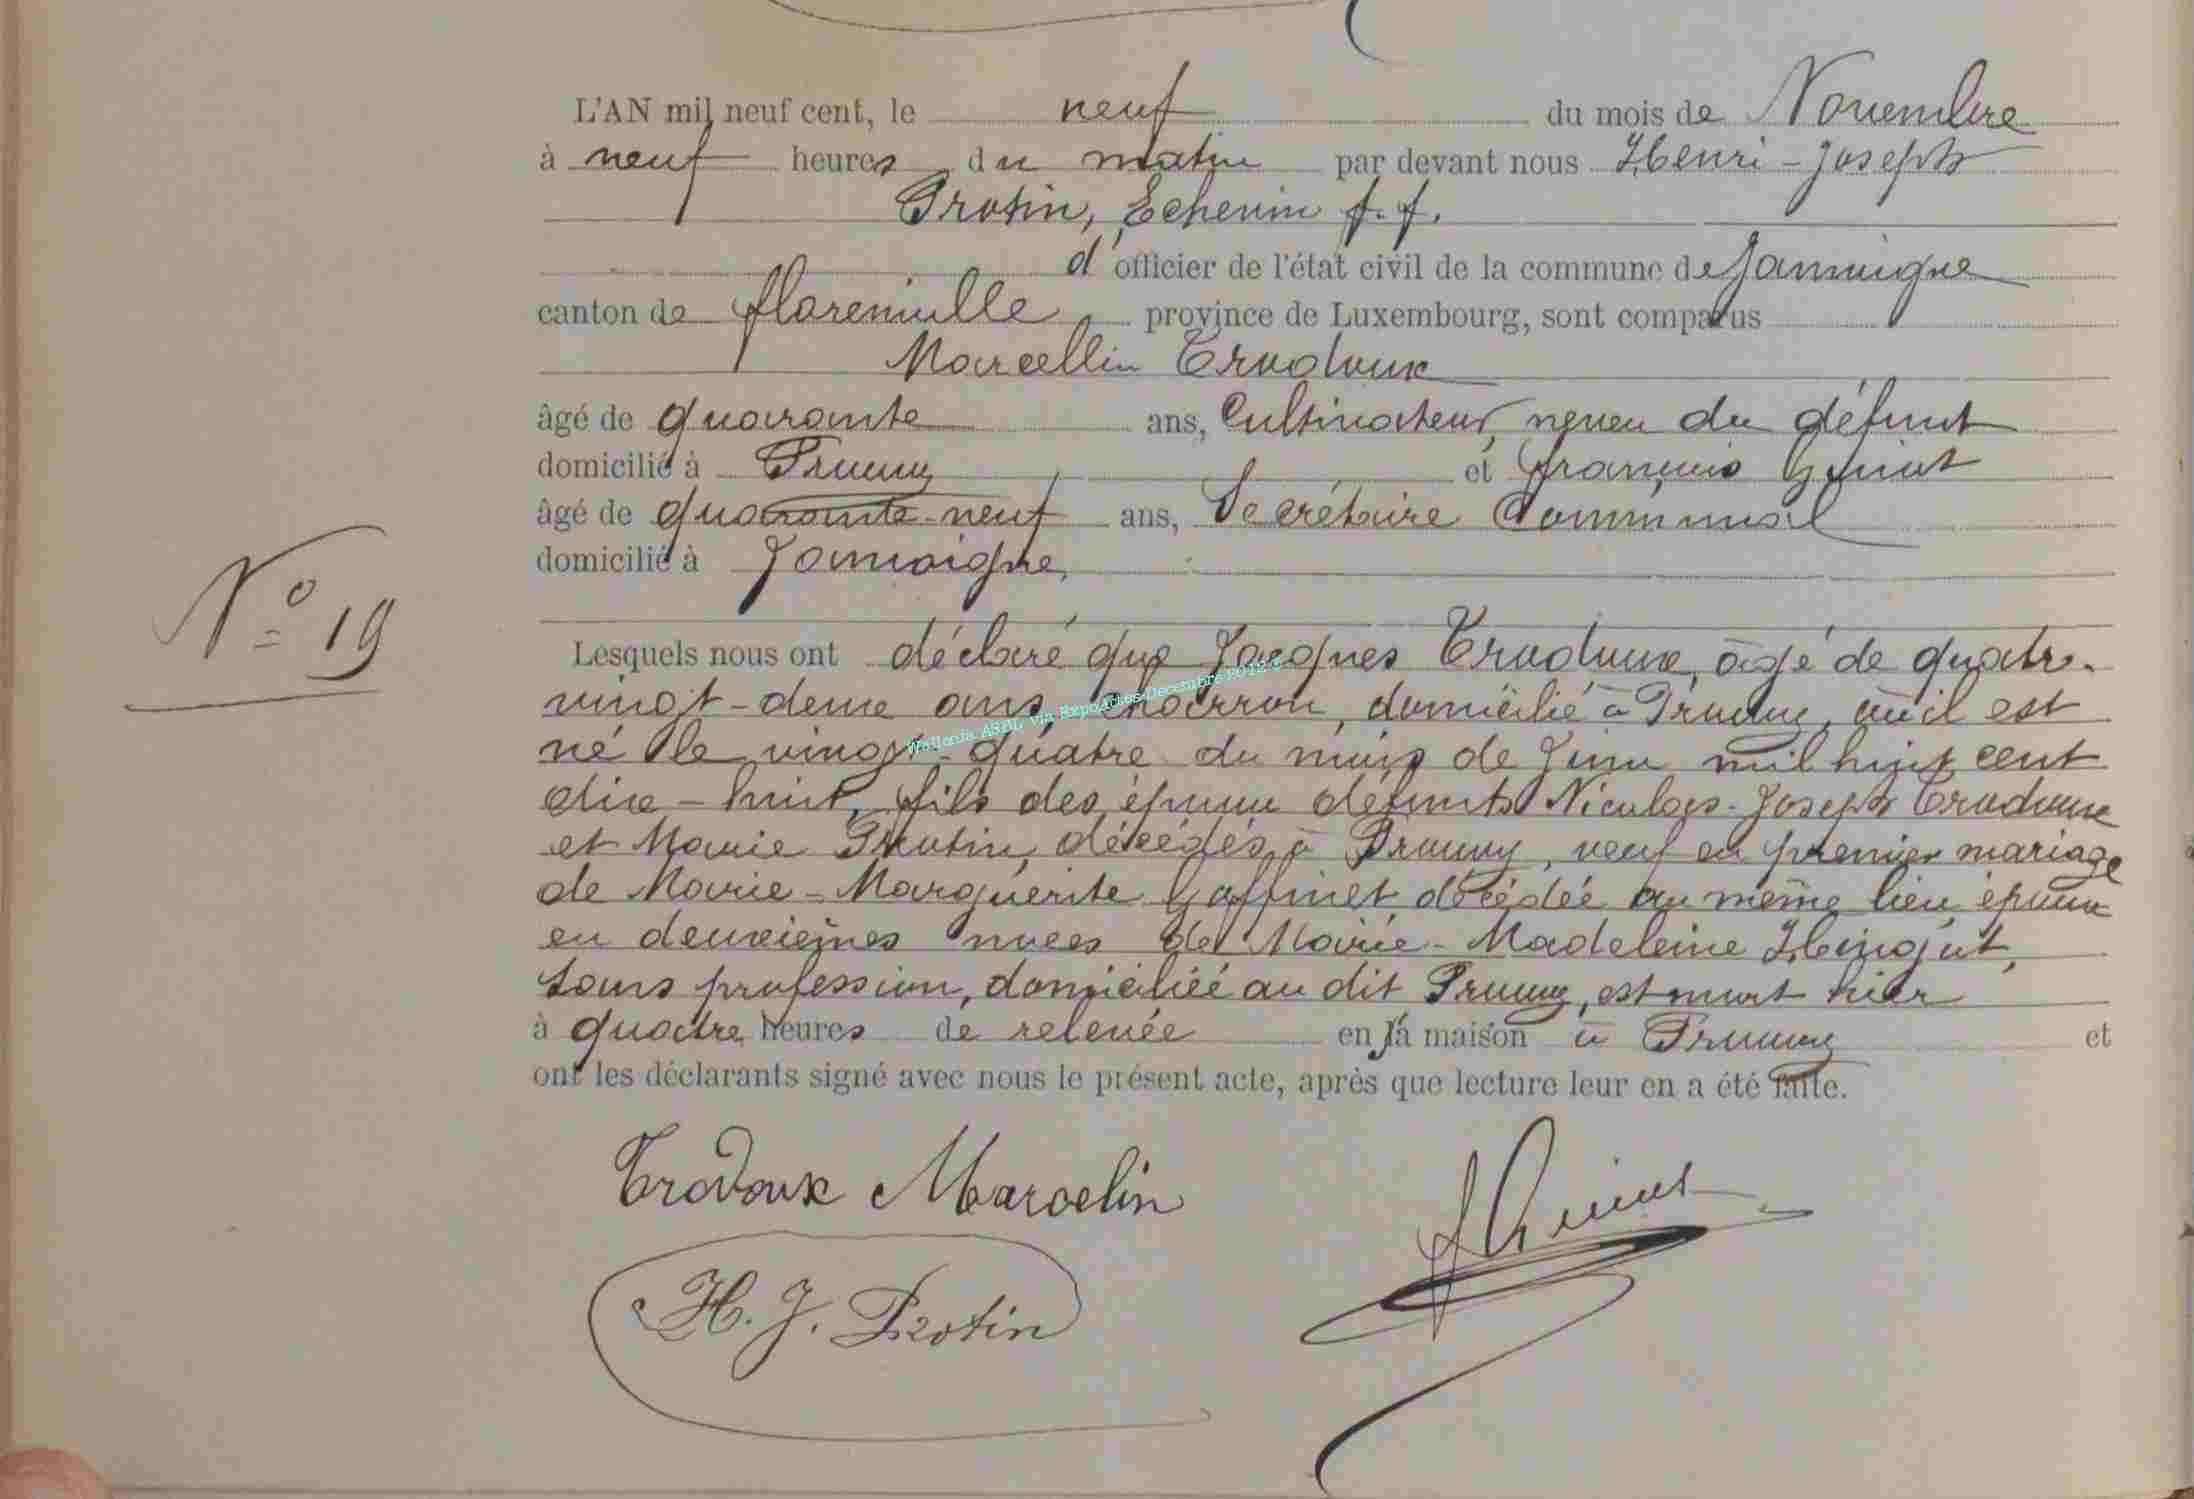 L'AN mil neuf cent, le neuf du mois de Novembre
à neuf heures du matin par devant nous Henri-Joseph
Protin, Echevin f.f.
d'officier de l'état civil de la commune de Jamoigne
canton de Florenville province de Luxembourg, sont comparus
Marcellin Trodoux
âgé de quarante ans, Cultivateur, neveu du défunt
domicilié à Prouvy et François
âgé de quarante-neuf ans, Secrétaire Communal
domicilié à Jamoigne,
N° 19
Lesquels nous ont déclaré que Jacques Trodoux, âgé de quatre-
vingt-deux ans, charron, domicilié à Prouvy, où il est
né le vingt-quatre du mois de Juin mil huit cent
dix-huit, fils des époux défunts Nicolas-Joseph Trodoux
et Marie Protin, décédés à Prouvy, veuf en premier mariage
de Marie-Marguerite Goffinet décédée au même lieu, époux
en deuxièmes noces de Marie-Madeleine Hingot,
sans profession, domiciliée au dit Prouvy, est mort hier
à quatre heures de relevée en sa maison à Prouvy et
ont les déclarants signé avec nous le présent acte, après que lecture leur en a été faite.
Trodoux Marcelin
H. J. Protin
Wallonia ASBL via ExpoActes Decembre